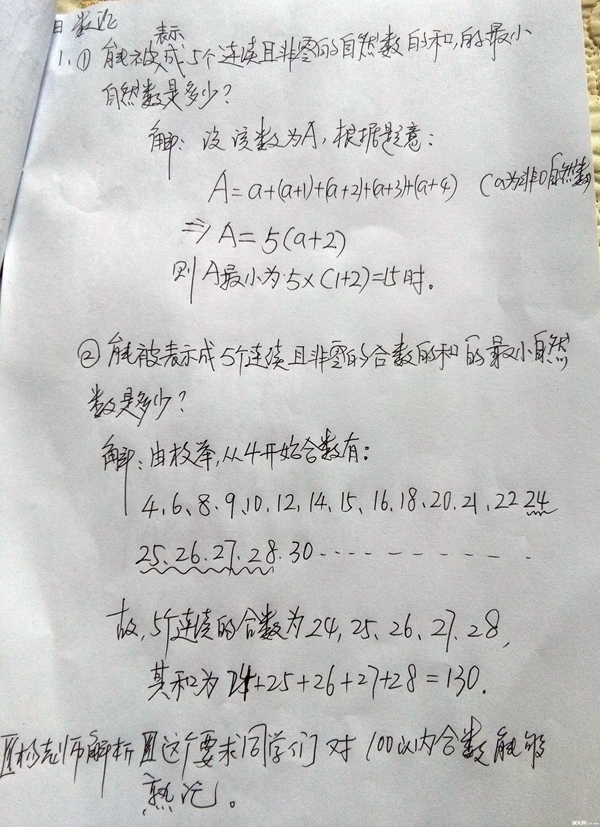 日 数论
1. ① 能被表示成5个连续且非零的自然数的和,的最小
自然数是多少?
解: 设该数为A, 根据题意:
A=a+(a+1)+(a+2)+(a+3)+(a+4) (a为非0自然数)
⇒ A=5(a+2)
则A最小为5×(1+2)=15时。
② 能被表示成5个连续且非零的合数的和的最小自然
数是多少?
解: 由枚举, 从4开始合数有:
4、6、8、9、10、12、14、15、16、18、20、21、22 24
25、26、27、28、30
故, 5个连续的合数为24, 25、26、27、28,
其和为24+25+26+27+28=130.
师解析 这个要求同学们对100以内合数能够
熟记。